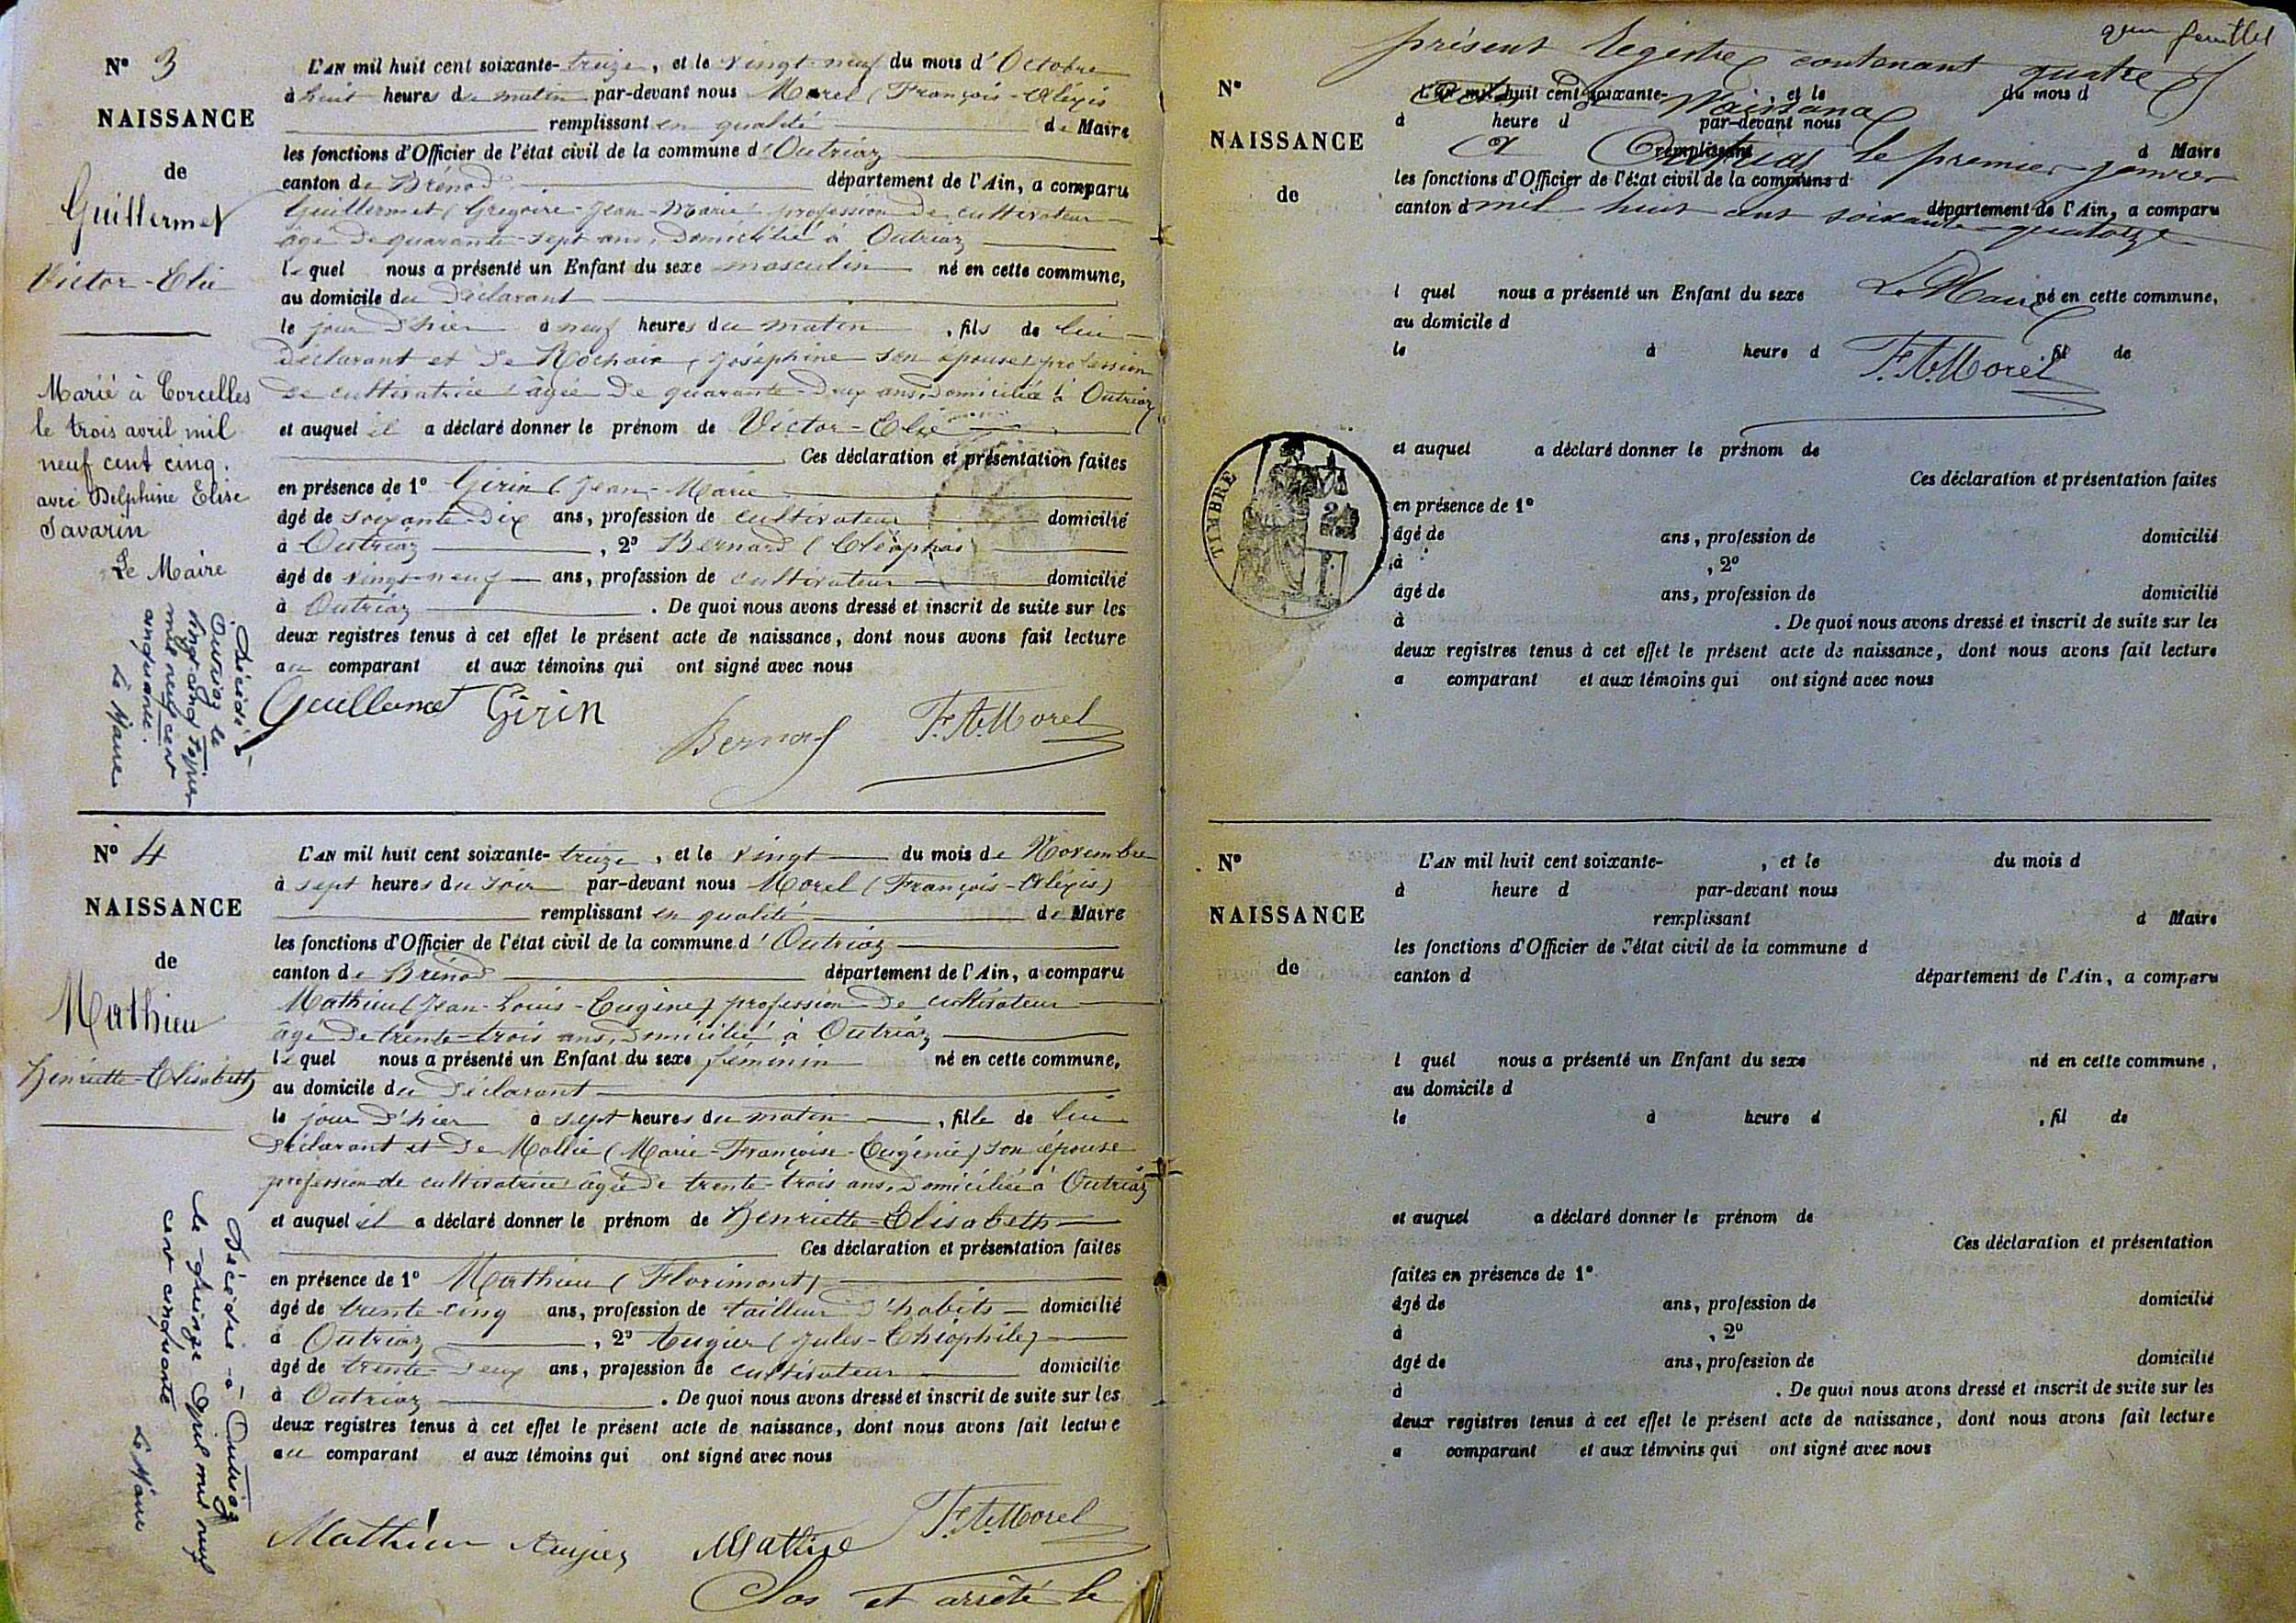 N° 3
NAISSANCE
de
Guillermet
Victor-Elie
Marié à Corcelles
le trois avril mil
neuf cent cinq.
avec Delphine Elise
Savarin
Le Maire
Décédé à
Outriaz le
vingt-cinq février
mil neuf cent
cinquante.
Le Maire
L'AN mil huit cent soixante-treize, et le vingt neuf du mois d'Octobre
à huit heures du matin par-devant nous Morel (François-Aléxis
remplissant en qualité de Maire
les fonctions d'Officier de l'état civil de la commune d'Outriaz
canton de Brénod département de l'Ain, a comparu
Guillermet (Grégoire-Jean-Marie) profession de cultivateur
âgé de quarante-sept ans, domicilié à Outriaz
lequel nous a présenté un Enfant du sexe masculin né en cette commune,
au domicile du déclarant
le jour d'hier à neuf heures du matin, fils de lui
déclarant et de Rochaix (Joséphine son épouse) profession
de cultivatrice âgée de quarante-deux ans, domiciliée à Outriaz
et auquel il a déclaré donner le prénom de Victor-Elie
Ces déclaration et présentation faites
en présence de 1° Girin (Jean-Marie
âgé de soixante-dix ans, profession de cultivateur domicilié
à Outriaz, 2° Bernard (Cléophas
âgé de vingt-neuf ans, profession de cultivateur domicilié
à Outriaz. De quoi nous avons dressé et inscrit de suite sur les
deux registres tenus à cet effet le présent acte de naissance, dont nous avons fait lecture
au comparant et aux témoins qui ont signé avec nous
Guillermet Girin
Bernard F. A. Morel
N° 4
NAISSANCE
de
Mathieu
Henriette-Elisabeth
Décédée à Outriaz
le quinze Avril mil neuf
cent cinquante
Le Maire
L'AN mil huit cent soixante-treize, et le vingt du mois de Novembre
à sept heures du soir par-devant nous Morel (François-Aléxis)
remplissant en qualité de Maire
les fonctions d'Officier de l'état civil de la commune d'Outriaz
canton de Brénod département de l'Ain, a comparu
Mathieu (Jean-Louis-Eugène) profession de cultivateur
âgé de trente-trois ans, domicilié à Outriaz
lequel nous a présenté un Enfant du sexe féminin né en cette commune,
au domicile du déclarant
le jour d'hier à sept heures du matin, fille de lui
déclarant et de Mollie (Marie-Françoise-Eugénie) son épouse
profession de cultivatrice âgée de trente-trois ans, domiciliée à Outriaz
et auquel il a déclaré donner le prénom de Henriette-Elisabeth
Ces déclaration et présentation faites
en présence de 1° Mathieu (Florimont)
âgé de trente-cinq ans, profession de tailleur d'habits domicilié
à Outriaz, 2° Augier (Jules-Théophile)
âgé de trente-deux ans, profession de cultivateur domicilié
à Outriaz. De quoi nous avons dressé et inscrit de suite sur les
deux registres tenus à cet effet le présent acte de naissance, dont nous avons fait lecture
au comparant et aux témoins qui ont signé avec nous
Mathieu Augier Mathieu F. A. Morel
Clos et arrêté le
feuillet
présent Registre contenant quatre
Naissance
A Outriaz le premier janvier
mil huit cent soixante-quatorze
Le Maire
F. A. Morel
TIMBRE
N°
NAISSANCE
de
L'AN mil huit cent soixante- , et le du mois d
à heure d par-devant nous
remplissant d Maire
les fonctions d'Officier de l'état civil de la commune d
canton d département de l'Ain, a comparu
l quel nous a présenté un Enfant du sexe né en cette commune,
au domicile d
le à heure d fil de
et auquel a déclaré donner le prénom de
Ces déclaration et présentation faites
en présence de 1°
âgé de ans, profession de domicilié
à , 2°
âgé de ans, profession de domicilié
à . De quoi nous avons dressé et inscrit de suite sur les
deux registres tenus à cet effet le présent acte de naissance, dont nous avons fait lecture
a comparant et aux témoins qui ont signé avec nous
N°
NAISSANCE
de
L'AN mil huit cent soixante- , et le du mois d
à heure d par-devant nous
remplissant d Maire
les fonctions d'Officier de l'état civil de la commune d
canton d département de l'Ain, a comparu
l quel nous a présenté un Enfant du sexe né en cette commune,
au domicile d
le à heure d , fil de
et auquel a déclaré donner le prénom de
Ces déclaration et présentation
faites en présence de 1°
âgé de ans, profession de domicilié
à , 2°
âgé de ans, profession de domicilié
à . De quoi nous avons dressé et inscrit de suite sur les
deux registres tenus à cet effet le présent acte de naissance, dont nous avons fait lecture
a comparant et aux témoins qui ont signé avec nous